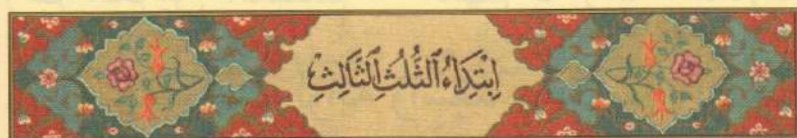 اِبْتِدَاءُ الثُّلُثِ الثَّالِثِ